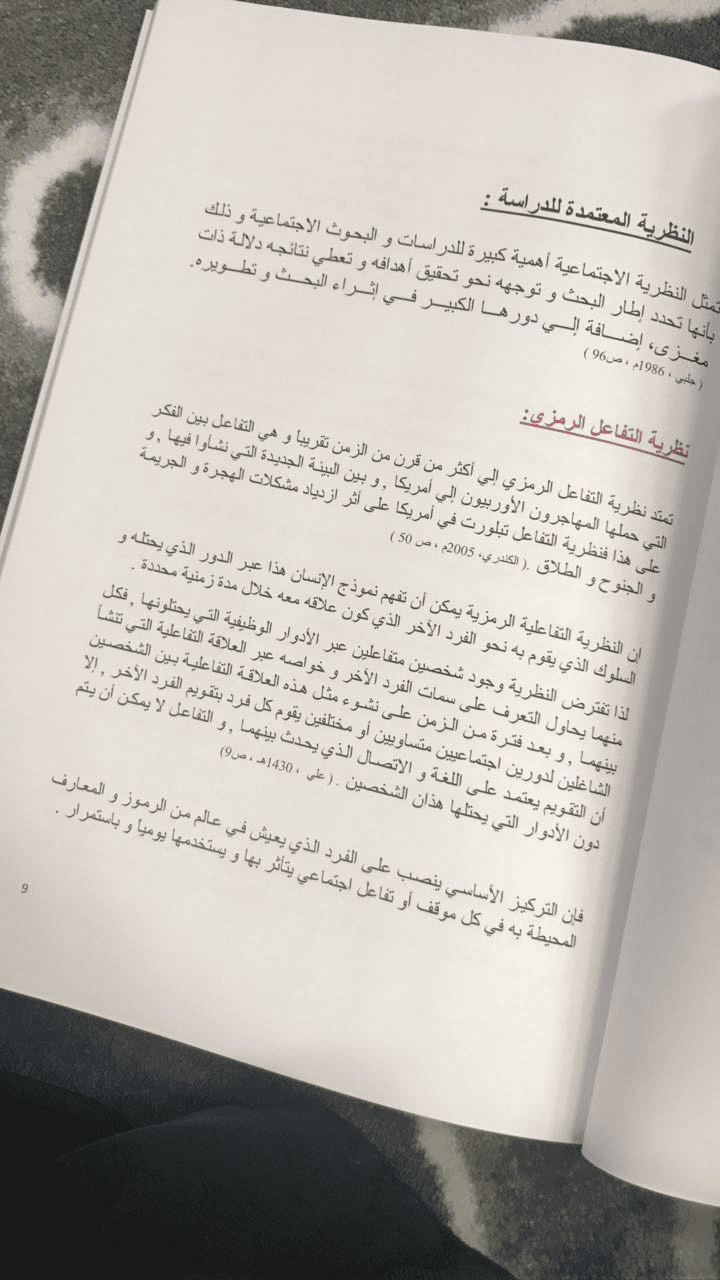 النظرية المعتمدة للدراسة :
تمثل النظرية الاجتماعية أهمية كبيرة للدراسات و البحوث الاجتماعية و ذلك
بأنها تحدد إطار البحث و توجهه نحو تحقيق أهدافه و تعطي نتائجه دلالة ذات
مغزى، إضافة إلي دورها الكبير في إثراء البحث و تطويره.
( جلبي ، 1986م ، ص96 )
نظرية التفاعل الرمزي:
تمتد نظرية التفاعل الرمزي إلي أكثر من قرن من الزمن تقريباً و هي التفاعل بين الفكر
التي حملها المهاجرون الأوربيون إلي أمريكا , و بين البيئة الجديدة التي نشأوا فيها , و
على هذا فنظرية التفاعل تبلورت في أمريكا على أثر ازدياد مشكلات الهجرة و الجريمة
و الجنوح و الطلاق .( الكندري، 2005م ، ص 50 )
إن النظرية التفاعلية الرمزية يمكن أن تفهم نموذج الإنسان هذا عبر الدور الذي يحتله و
السلوك الذي يقوم به نحو الفرد الآخر الذي كون علاقه معه خلال مدة زمنية محددة .
لذا تفترض النظرية وجود شخصين متفاعلين عبر الأدوار الوظيفية التي يحتلونها , فكل
منهما يحاول التعرف على سمات الفرد الآخر و خواصه عبر العلاقة التفاعلية التي تنشأ
بينهما , و بعد فترة من الزمن على نشوء مثل هذه العلاقة التفاعلية بين الشخصين
الشاغلين لدورين اجتماعيين متساويين أو مختلفين يقوم كل فرد بتقويم الفرد الآخر , إلا
أن التقويم يعتمد على اللغة و الاتصال الذي يحدث بينهما , و التفاعل لا يمكن أن يتم
دون الأدوار التي يحتلها هذان الشخصين . ( علي ، 1430هـ ، ص9)
فإن التركيز الأساسي ينصب على الفرد الذي يعيش في عالم من الرموز و المعارف
المحيطة به في كل موقف أو تفاعل اجتماعي يتأثر بها و يستخدمها يوميا و باستمرار .
9